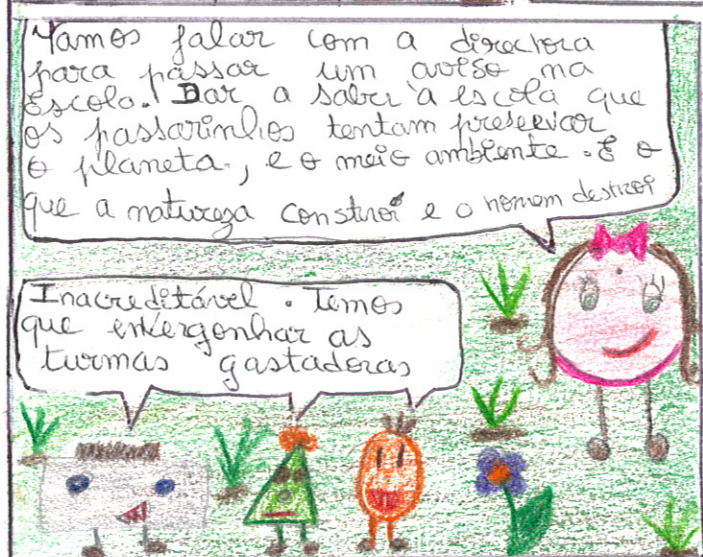 Vamos falar com a directora
para passar um aviso na
Escola. Dar a saber à escola que
os passarinhos tentam preservar
o planeta, e o meio ambiente. É o
que a natureza constroi e o homem destroi
Inacreditável. Temos
que envergonhar as
turmas gastadoras